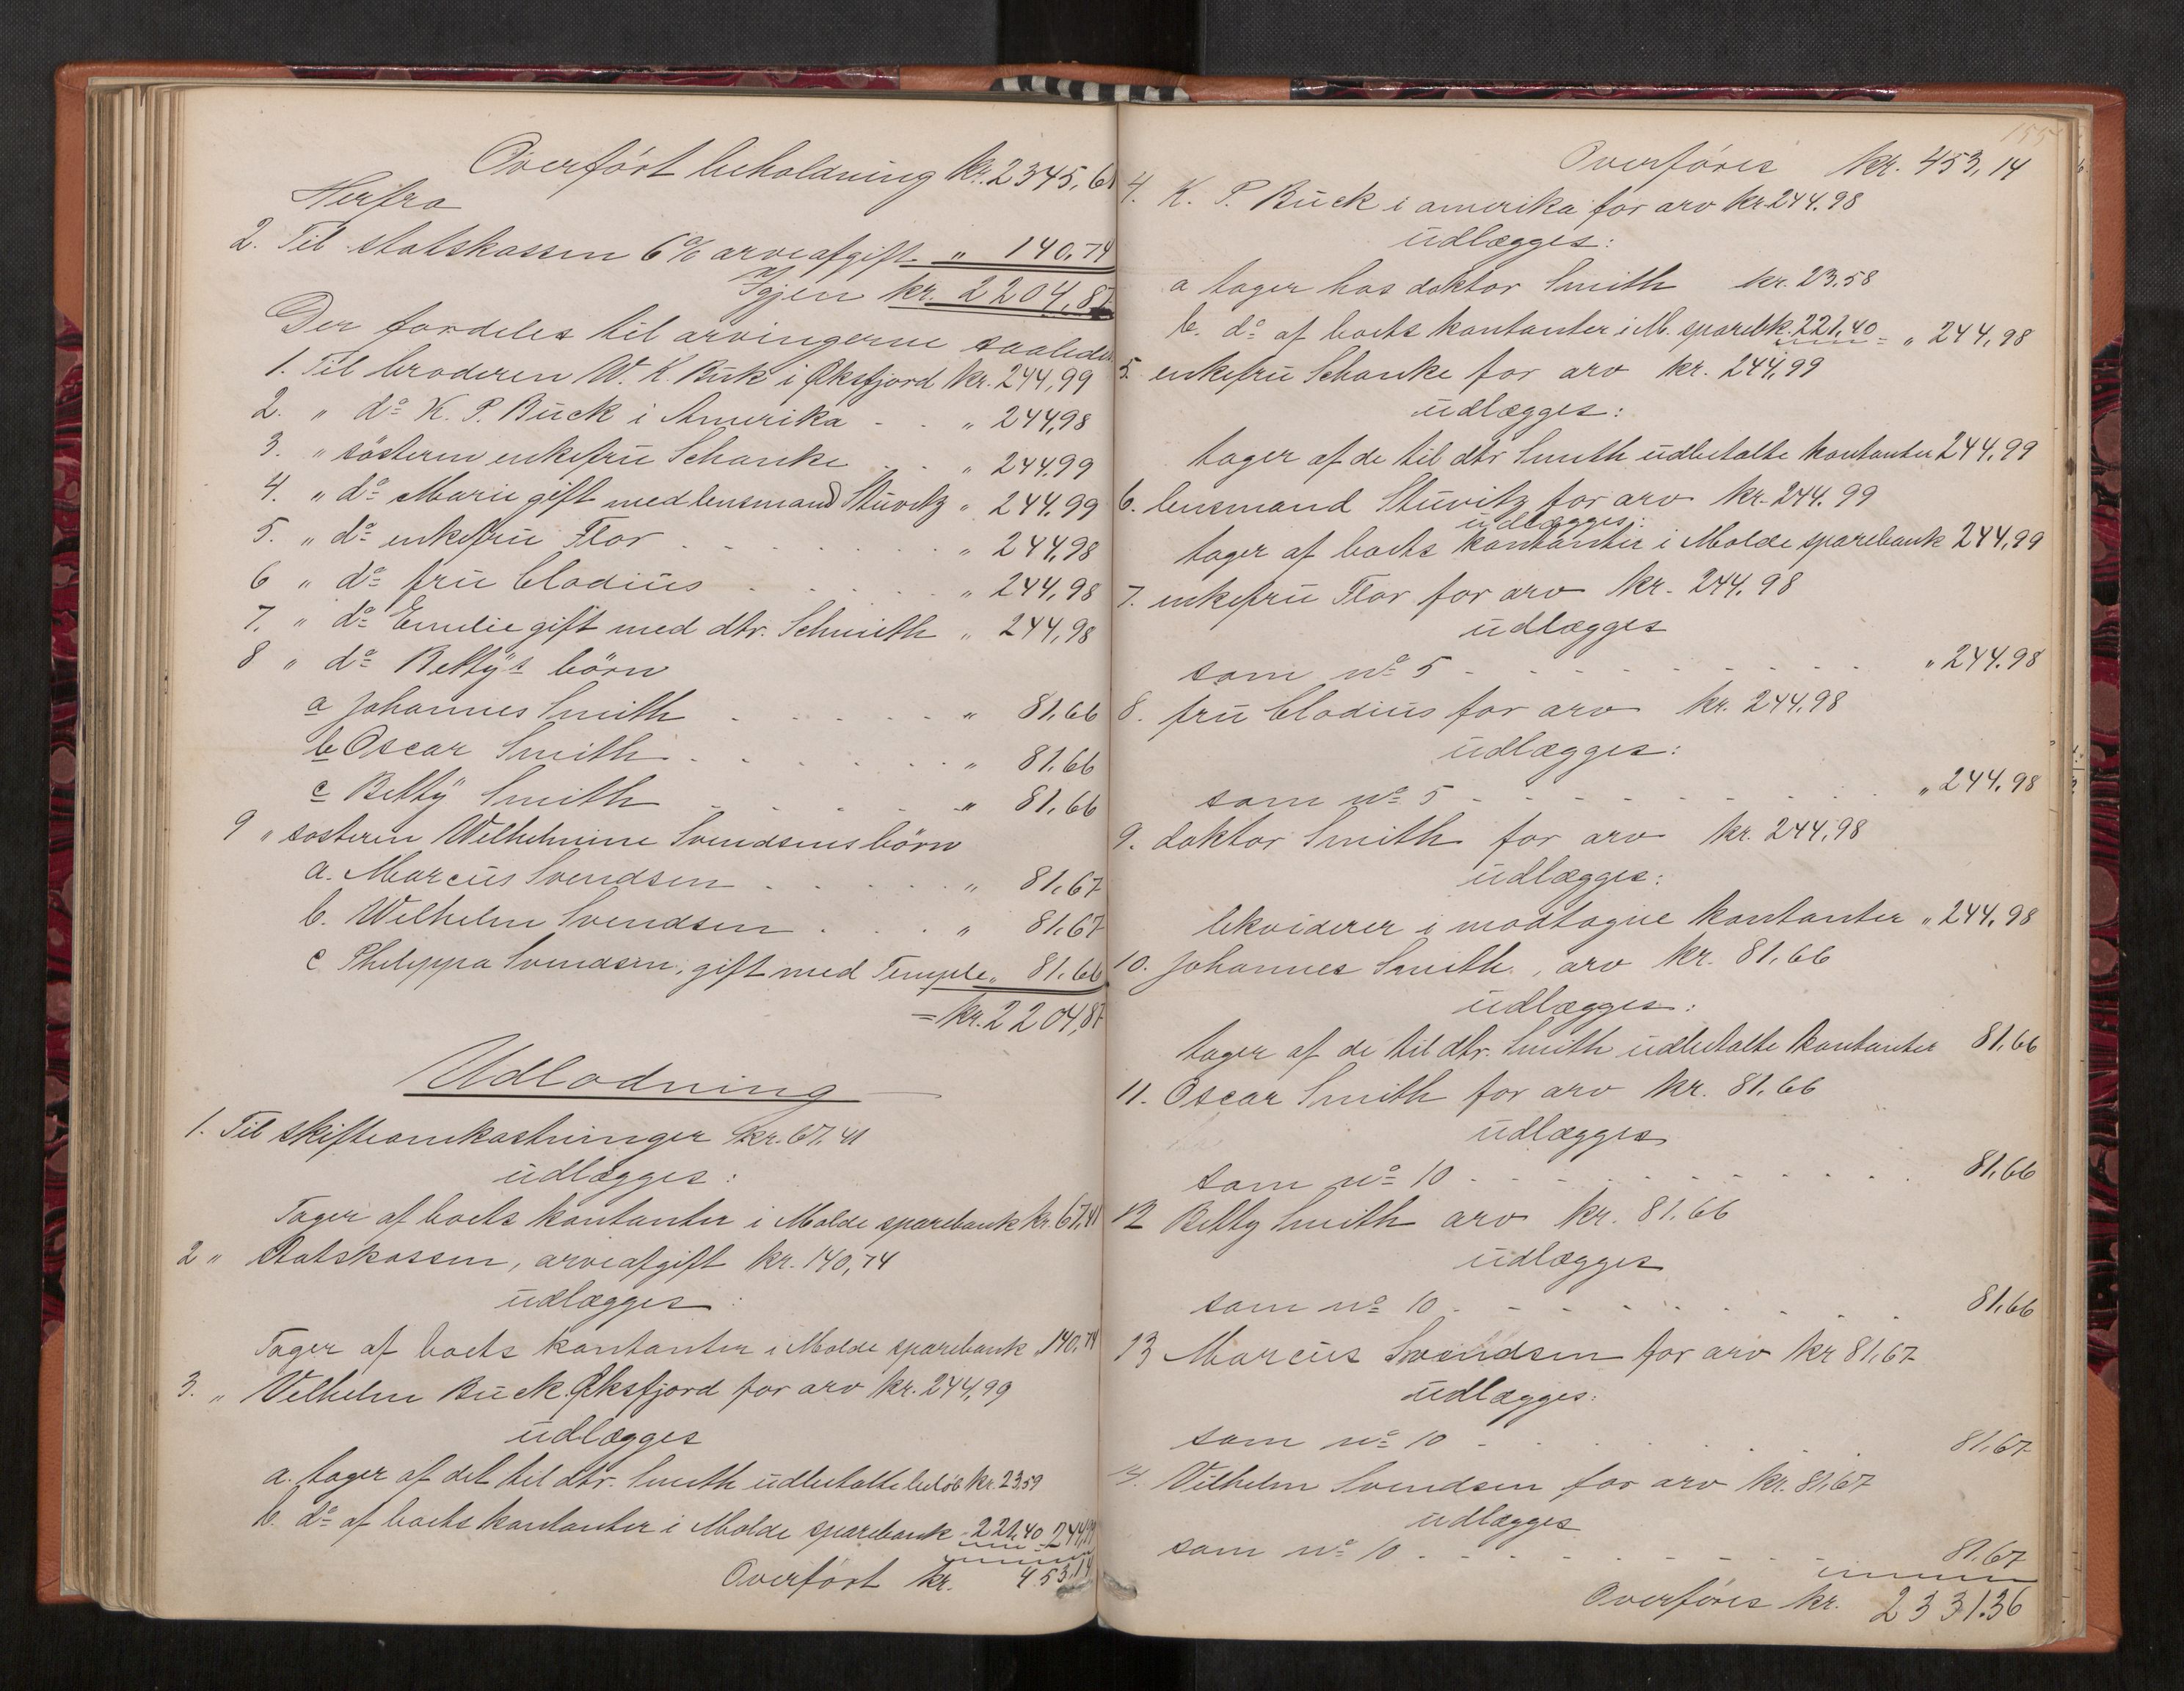 Overført beholdning kr. 2345,61
Herfra
2. Til statskassen 6% arveafgift " 140,74
Igjen kr. 2204,87
Der fordeles til arvingerne saaledes
1. Til broderen W. K. Buk i Øksfjord kr. 244,99
2. " do K. P. Buck i Amerika - - " 244,98
3. " søsteren enkefru Schanke - - " 244,99
4. " do Marie gift med lensmand Stuvitz " 244,99
5. " do enkefru Flor - - - " 244,98
6 " do fru Clodius - - - " 244,98
7. " do Emilie gift med dtr. Schmith " 244,98
8 " do Betty's børn
a Johannes Smith - - - " 81,66
b Oscar Smith - - - " 81,66
c Betty Smith - - - " 81,66
9 " søsteren Wilhelmine Svendsens børn
a. Marcus Svendsen - - - " 81,67
b. Wilhelm Svendsen - - - " 81,67
c. Philippa Svendsen, gift med Temple " 81,66
= kr. 2204,87
Udlodning
1. Til skifteomkostninger kr. 67,41
udlægges:
Tager af boets kontanter i Molde sparebank kr. 67,41
2 " Statskassen, arveafgift kr. 140,74
udlægges:
Tager af boets kontanter i Molde sparebank " 140,74
3. " Vilhelm Buck. Øksfjord for arv kr. 244,99
udlægges
a. tager af det til dtr. Smith udbetalte beløb kr. 23,59
b. do af boets kontanter i Molde sparebank - 221,40 = 244,99
Overført kr. 453,14
155
Overføres kr. 453,14
4. K. P. Buck i amerika for arv kr. 244,98
udlægges:
a tager hos doktor Smith kr. 23,58
b. do af boets kontanter i M. sparebk. 221,40 = " 244,98
5. enkefru Schanke for arv kr. 244,99
udlægges:
tager af de til dtr Smith udbetalte kontanter 244,99
6. lensmand Stuvitz for arv kr. 244,99
udlægges:
tager af boets kontanter i Molde sparebank 244,99
7. enkefru Flor for arv kr. 244,98
udlægges
som no 5 - - - " 244,98
8. fru Clodius for arv kr. 244,98
udlægges:
som no 5 - - - " 244,98
9. doktor Smith for arv kr. 244,98
udlægges:
likviderer i modtagne kontanter " 244,98
10. Johannes Smith, arv kr. 81,66
udlægges:
tager af de til dtr. Smith udbetalte kontanter 81,66
11. Oscar Smith for arv kr. 81,66
udlægges
som no 10 - - - 81,66
12 Betty Smith arv kr. 81,66
udlægges
som no 10 - - - 81,66
13 Marcus Svendsen for arv kr 81,67
udlægges:
som no 10 - - - 81,67
14. Vilhelm Svendsen for arv kr. 81,67
udlægges
som no 10 - - - 81,67
Overføres kr. 2331.36